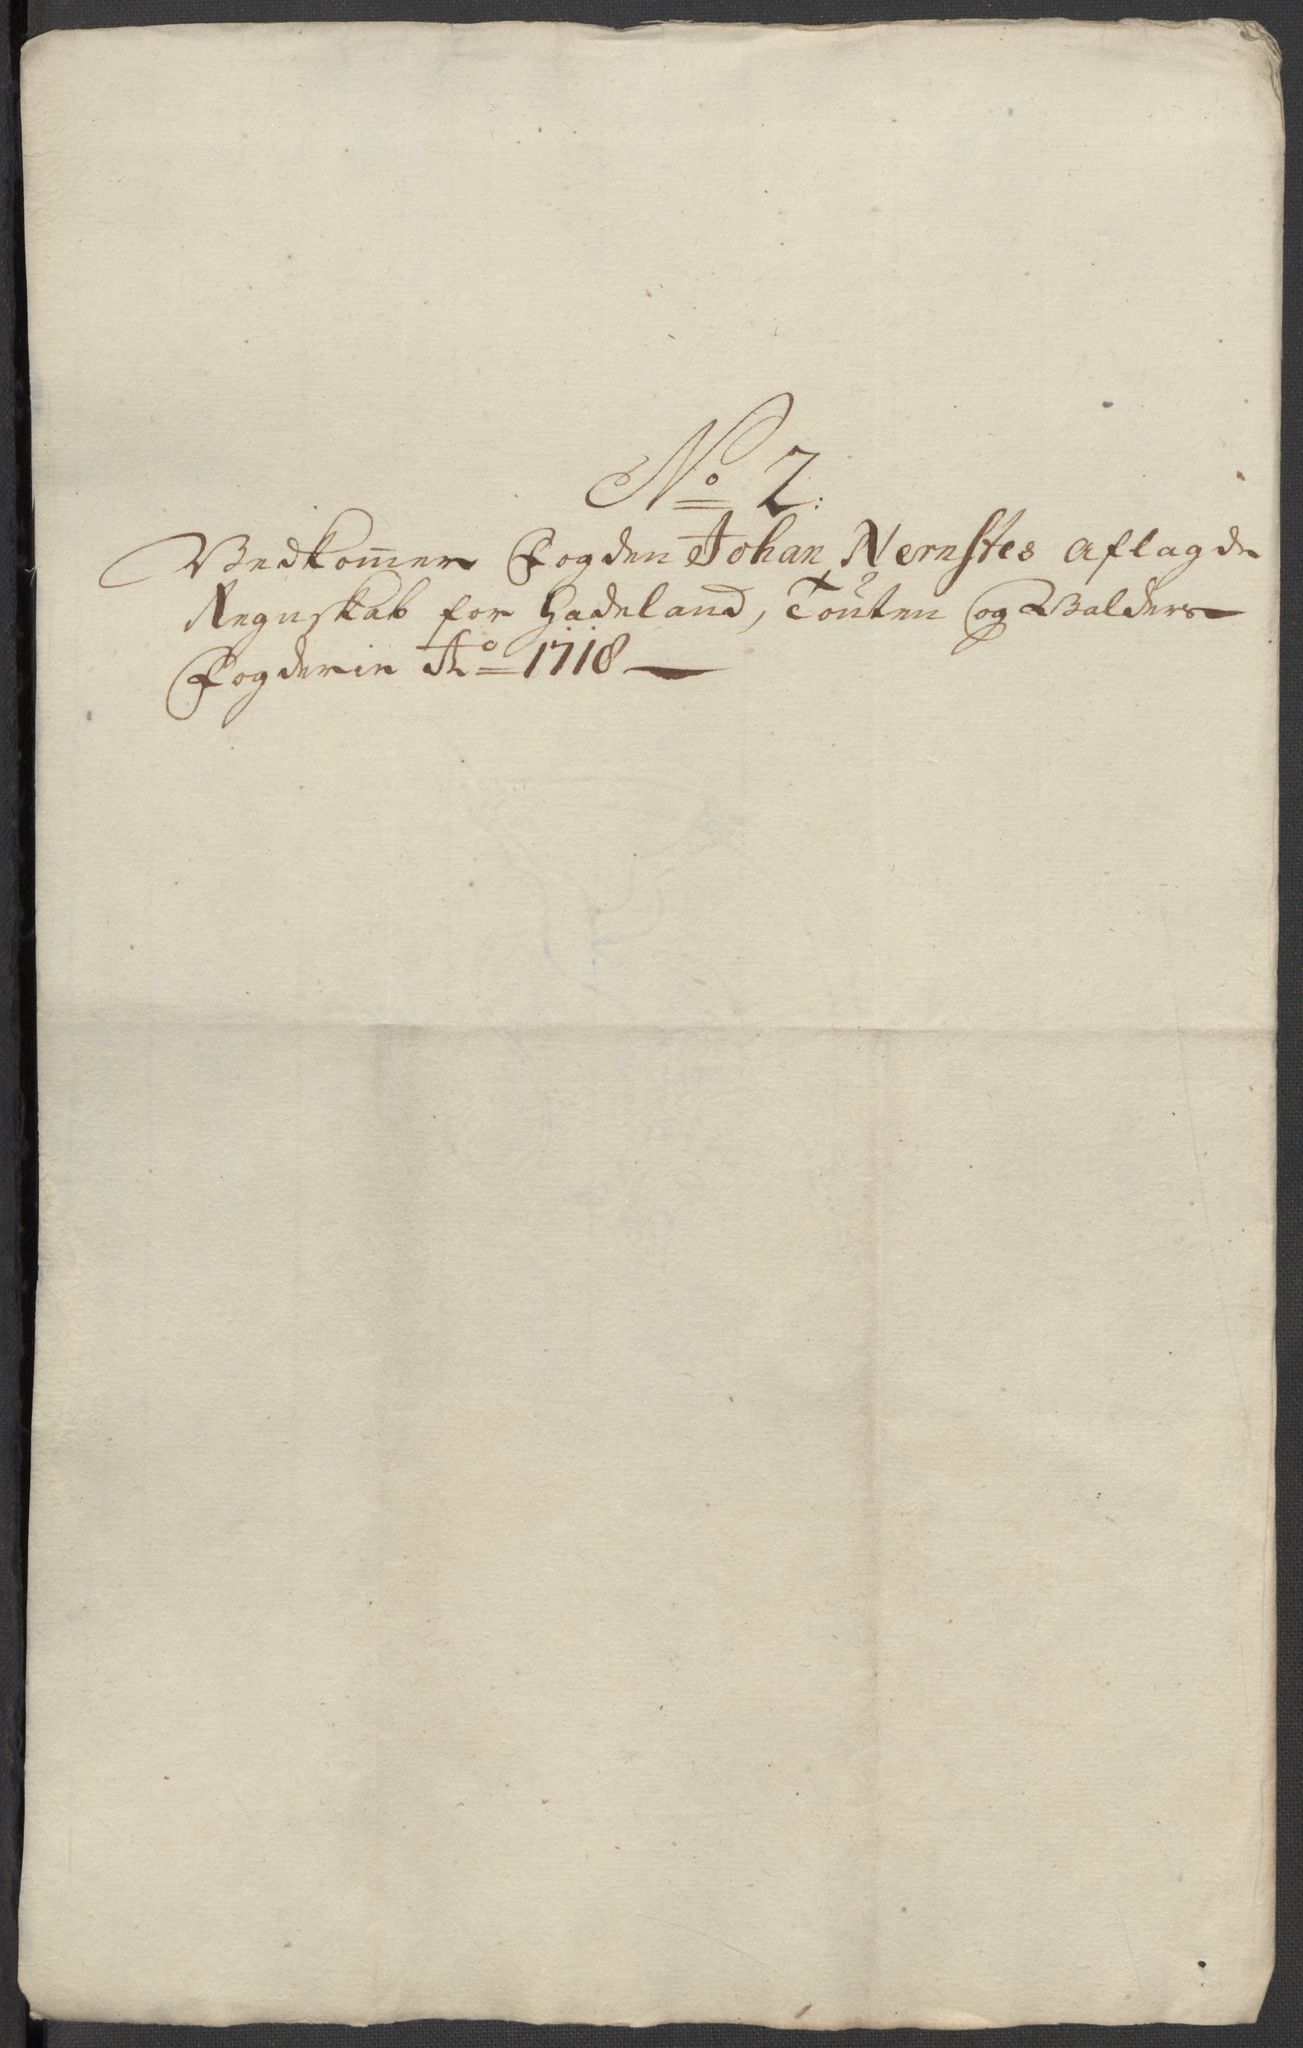 No 2:
Vedkom̄er Fogden Johan Nernstes aflagde
Regnskab for Hadeland, Toūten og Valders
Fogderie Ao 1718